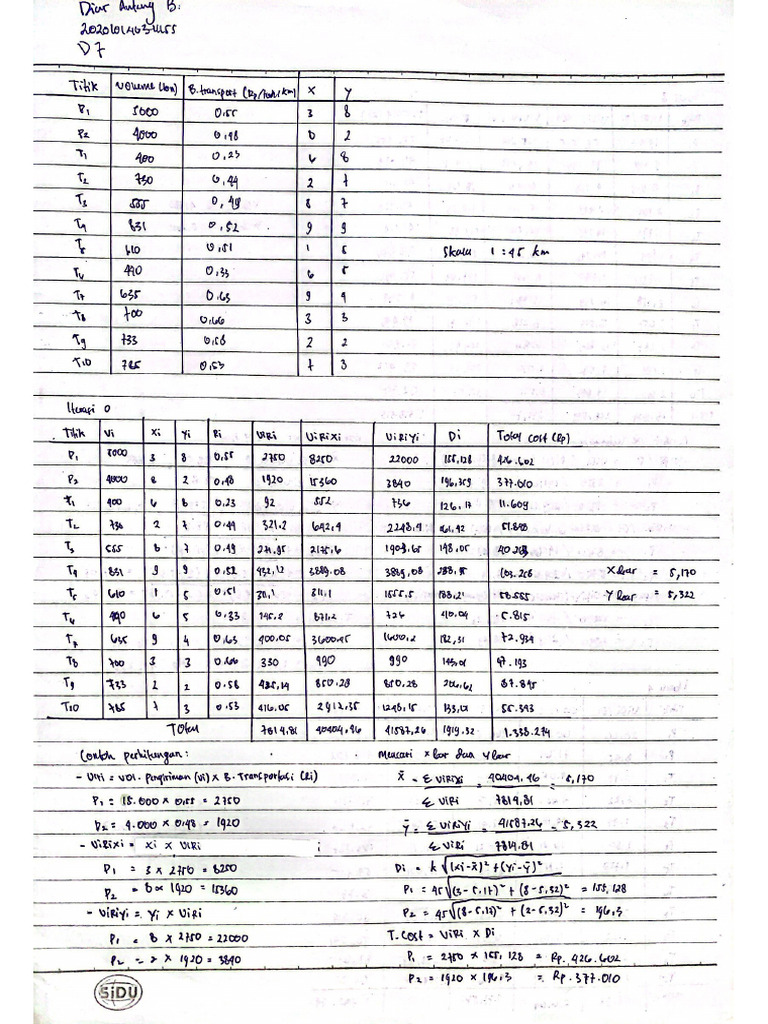 Diar Antang B.
D7
Titik Volume (ton) B. transport (Rp/ton/km) X Y
P1 5000 0,55 3 8
P2 4000 0,48 8 2
T1 400 0,23 6 8
T2 730 0,44 2 7
T3 555 0,49 8 7
T4 831 0,52 9 9
T5 610 0,51 1 5
Skala 1 : 45 km
T6 440 0,33 6 5
T7 635 0,63 9 4
T8 700 0.66 3 3
T9 733 0,58 2 2
T10 785 0,53 7 3
Iterasi 0
Titik Vi Xi Yi Ri ViRi ViRiXi ViRiYi Di Total cost (Rp)
P1 5000 3 8 0.55 2750 8250 22000 155,128 426.602
P2 4000 8 2 0,48 1920 15360 3840 196,359 377.010
T1 400 6 8 0.23 92 552 736 126,17 11.609
T2 730 2 7 0.44 321,2 642,4 2248,4
T3 555 8 7 0.49 271,95 2175,6 1903,65 148,05
T4 831 9 9 0,52 432,12 3889.08 3889,08 103.256 X bar = 5,170
T5 610 1 5 0,51 311,1 311,1 1555,5 188,21 58.555 Y bar = 5,322
T6 490 6 5 0.33 726 5.815
T7 635 9 4 0,63 400.05 3600.45 1600,2 182,31 72.934
T8 700 3 3 0.66 330 990 990 47.193
T9 733 2 2 0.58 425,14 850.28 850,28 206,62 87.845
T10 785 7 3 0.53 416.05 2912,35 1248,15 133,14 55.393
Total 7814.81 40404,46 41587,26 1919,32 1.338.274
Contoh perhitungan: Mencari x bar dan y bar
- ViRi = Vol. Pengiriman (Vi) x B. Transportasi (Ri) X̄ = Σ ViRiXi / Σ ViRi = 40404,46 / 7814,81 = 5,170
P1 = 15.000 x 0,55 = 2750
P2 = 4.000 x 0,48 = 1920 ȳ = Σ ViRiYi / Σ ViRi = 41587.26 / 7814.81 = 5,322
- ViRiXi = Xi x ViRi i
P1 = 3 x 2750 = 8250 Di = k √(xi-x̄)² + (yi-ȳ)²
P2 = 8 x 1920 = 15360 P1 = 45√(3-5,17)² + (8-5,32)² = 155,128
- ViRiYi = Yi x ViRi P2 = 45√(8-5,17)² + (2-5,32)² = 196,3
P1 = 8 x 2750 = 22000 T.Cost = ViRi x Di
P2 = 2 x 1920 = 3840 P1 = 2750 x 155,128 = Rp. 426.602
P2 = 1920 x 196,3 = Rp. 377.010
SiDU